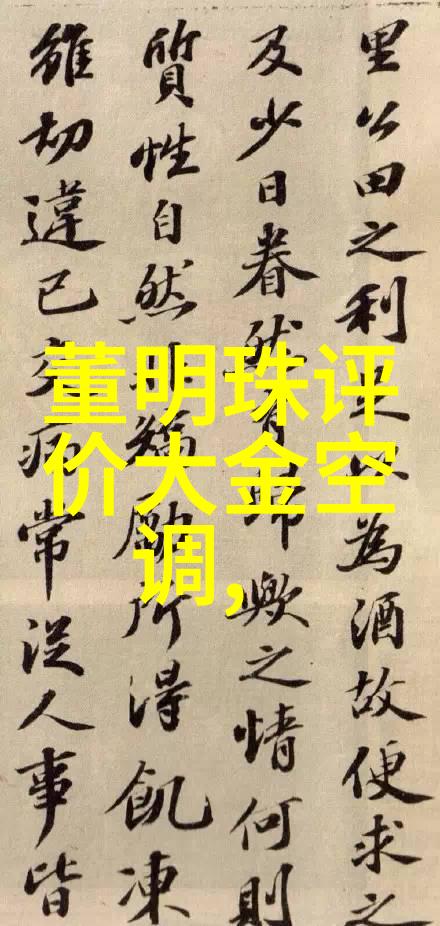 董明珠评
价大金空
调,
里公田之利足以為酒故便求之
及少日眷然有歸歟之情何則
質性自然非矯勵所得飢凍
雖切違己交病常從人事皆